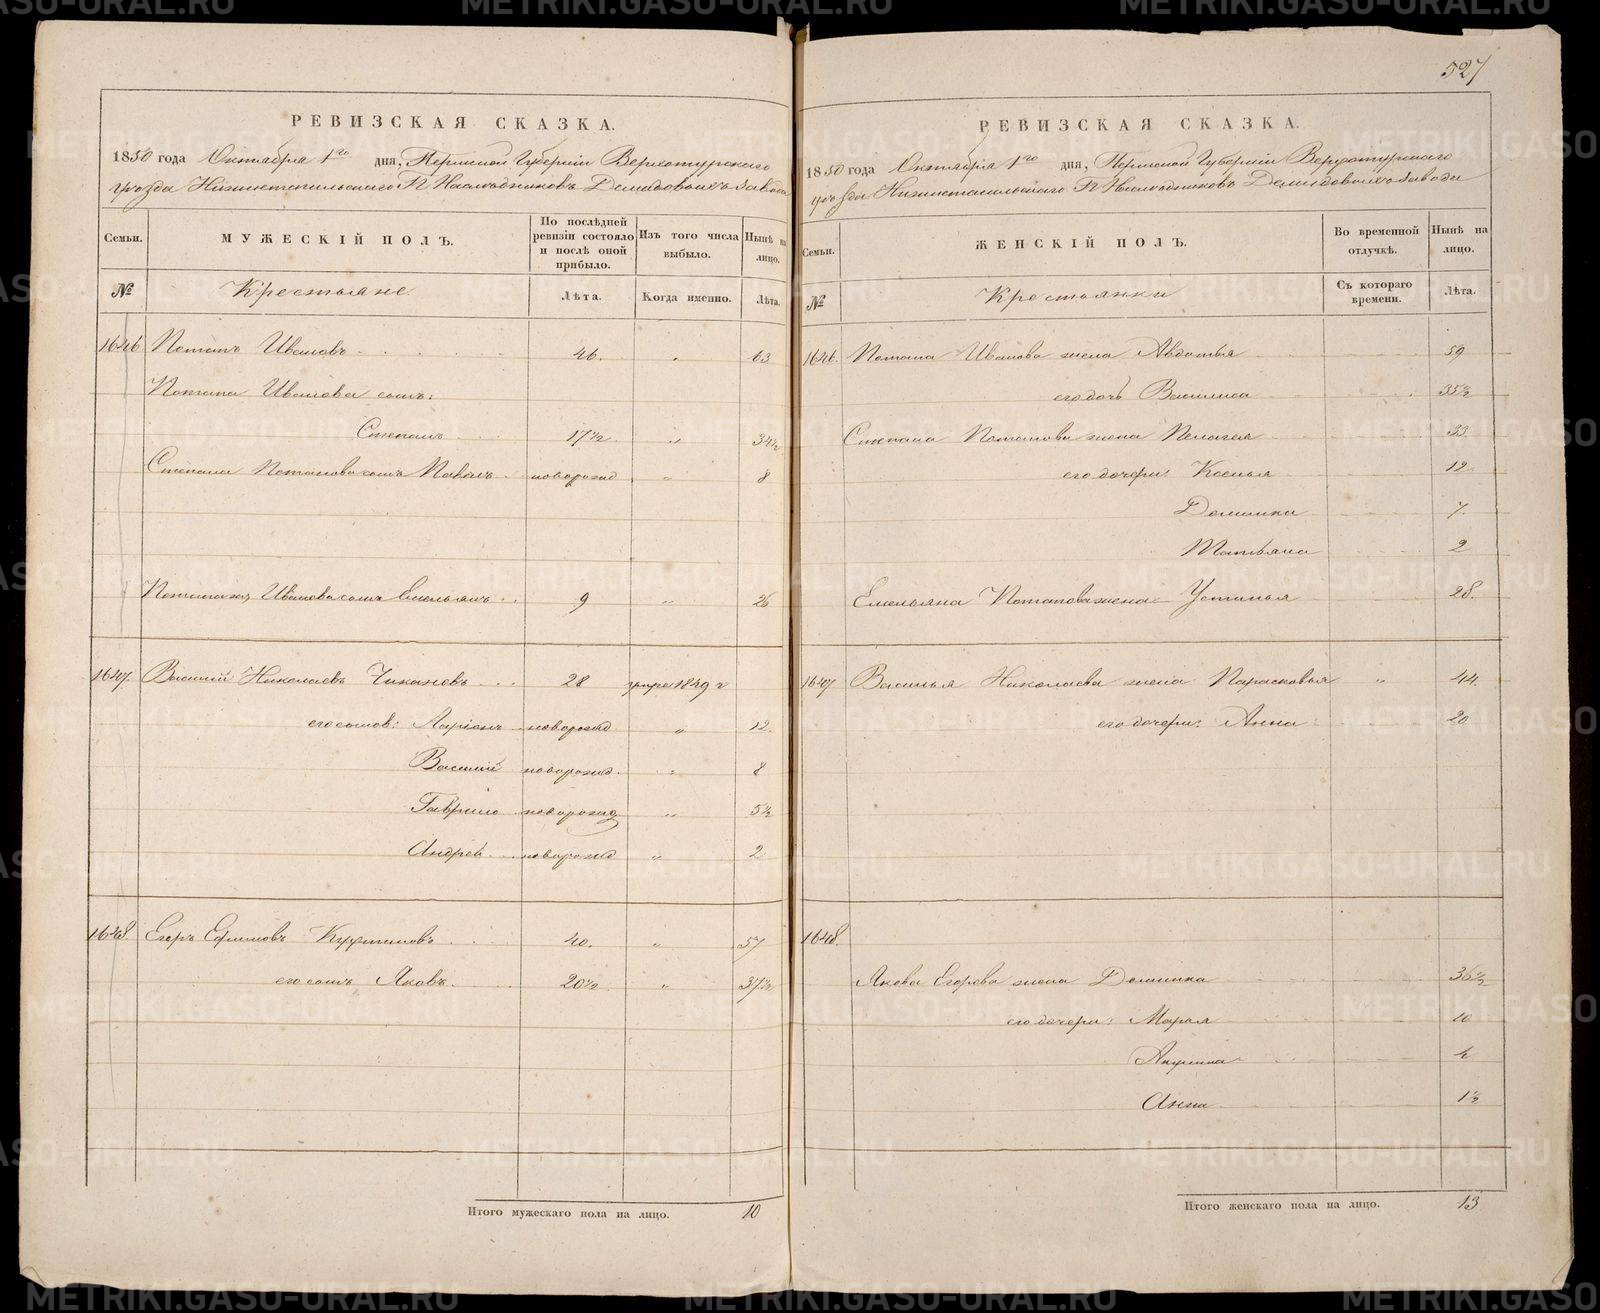 527
РЕВИЗСКАЯ СКАЗКА.
1850 года Октября 1го дня, Пермской Губерніи Верхотурскаго
уѣзда Нижнетагильскаго Гг Наслѣдниковъ Демидовыхъ завода
Семьи. МУЖЕСКІЙ ПОЛЪ. По послѣдней ревизіи состояло и послѣ оной прибыло. Изъ того числа выбыло. Нынѣ на лицо.
№ Крестьяне. Лѣта. Когда именно. Лѣта.
1646. Потапъ Ивановъ 46. " 63
Потапа Иванова сынъ:
Степанъ 17½ " 34½
Степана Потапова сынъ Павелъ новорожд " 8
Потапа Иванова сынъ Емельянъ 9 " 26
1647. Василій Николаевъ Чиканевъ 28 умре 1849 г
его сынов: Ларіонъ новорожд " 12
Василій новорожд. " 8
Гаврило новорожд " 5½
Андрей новорожд " 2
1648. Егоръ Ефимовъ 40. " 57
его сынъ Яковъ. 20½ " 37½
Итого мужескаго пола на лицо. 10
РЕВИЗСКАЯ СКАЗКА.
1850 года Октября 1го дня, Пермской Губерніи Верхотурскаго
уѣзда Нижнетагильскаго Гг Наслѣдниковъ Демидовыхъ завода
Семьи. ЖЕНСКІЙ ПОЛЪ. Во временной отлучкѣ. Нынѣ на лицо.
№ Крестьянки Съ котораго времени. Лѣта.
1646. Потапа Иванова жена Авдотья 59
его дочь Василиса 35½
Степана Потапова жена Пелагея 33
его дочери: Ксенья 12
Домника 7.
Татьяна 2
Емельяна Потапова жена Устинья 28.
1647 Василья Николаева жена Парасковья " 44.
его дочери: Анна 20
1648.
Якова Егорова жена Домника 36½
его дочери: Марья 10
4
Анна 1½
Итого женскаго пола на лицо. 13
METRIKI.GASO-URAL.RU